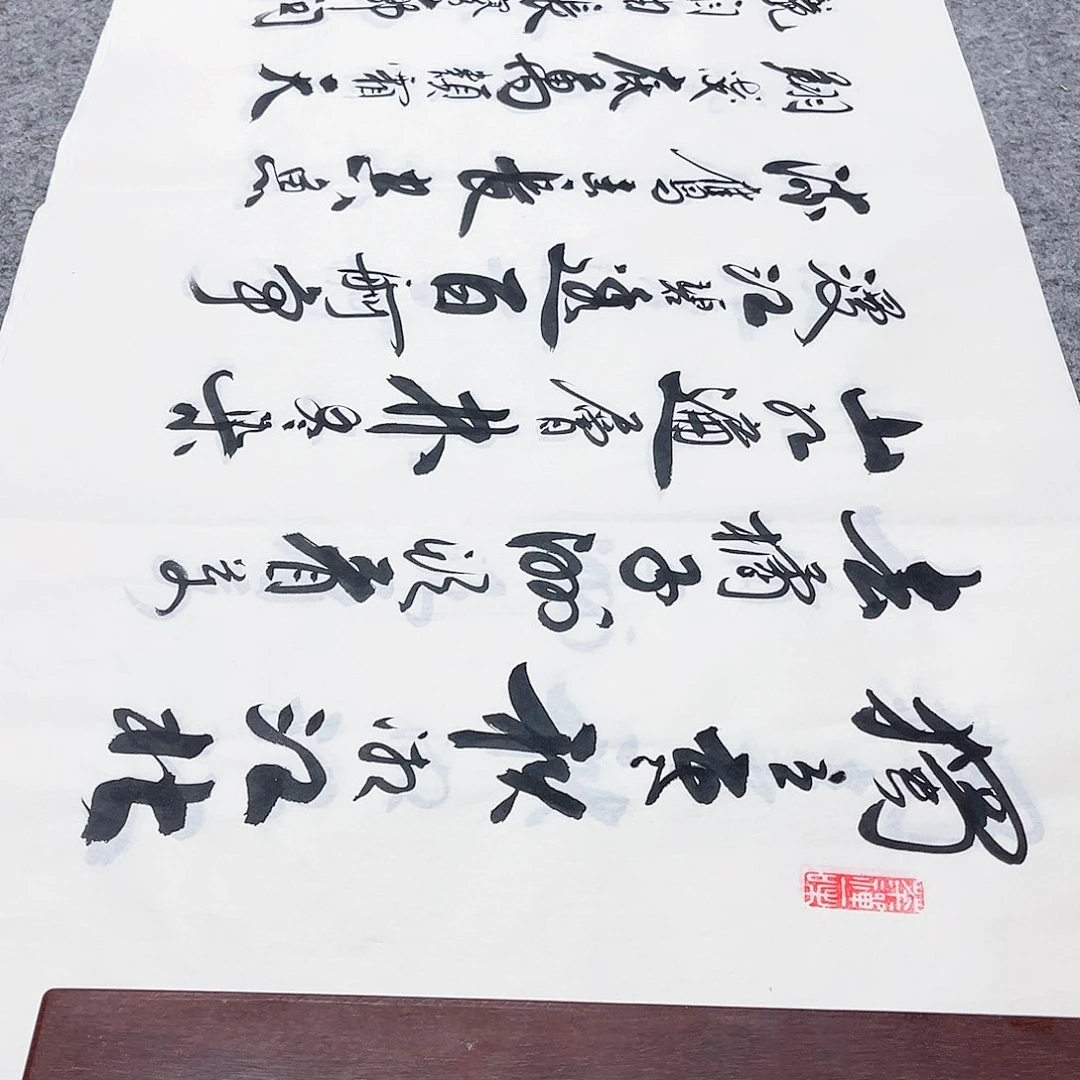 獨立寒秋湘江北
去橘子洲頭看萬
山紅遍層林盡染
漫江碧透百舸爭
流鷹擊長空魚
翔淺底萬類霜天
競自由悵寥廓問